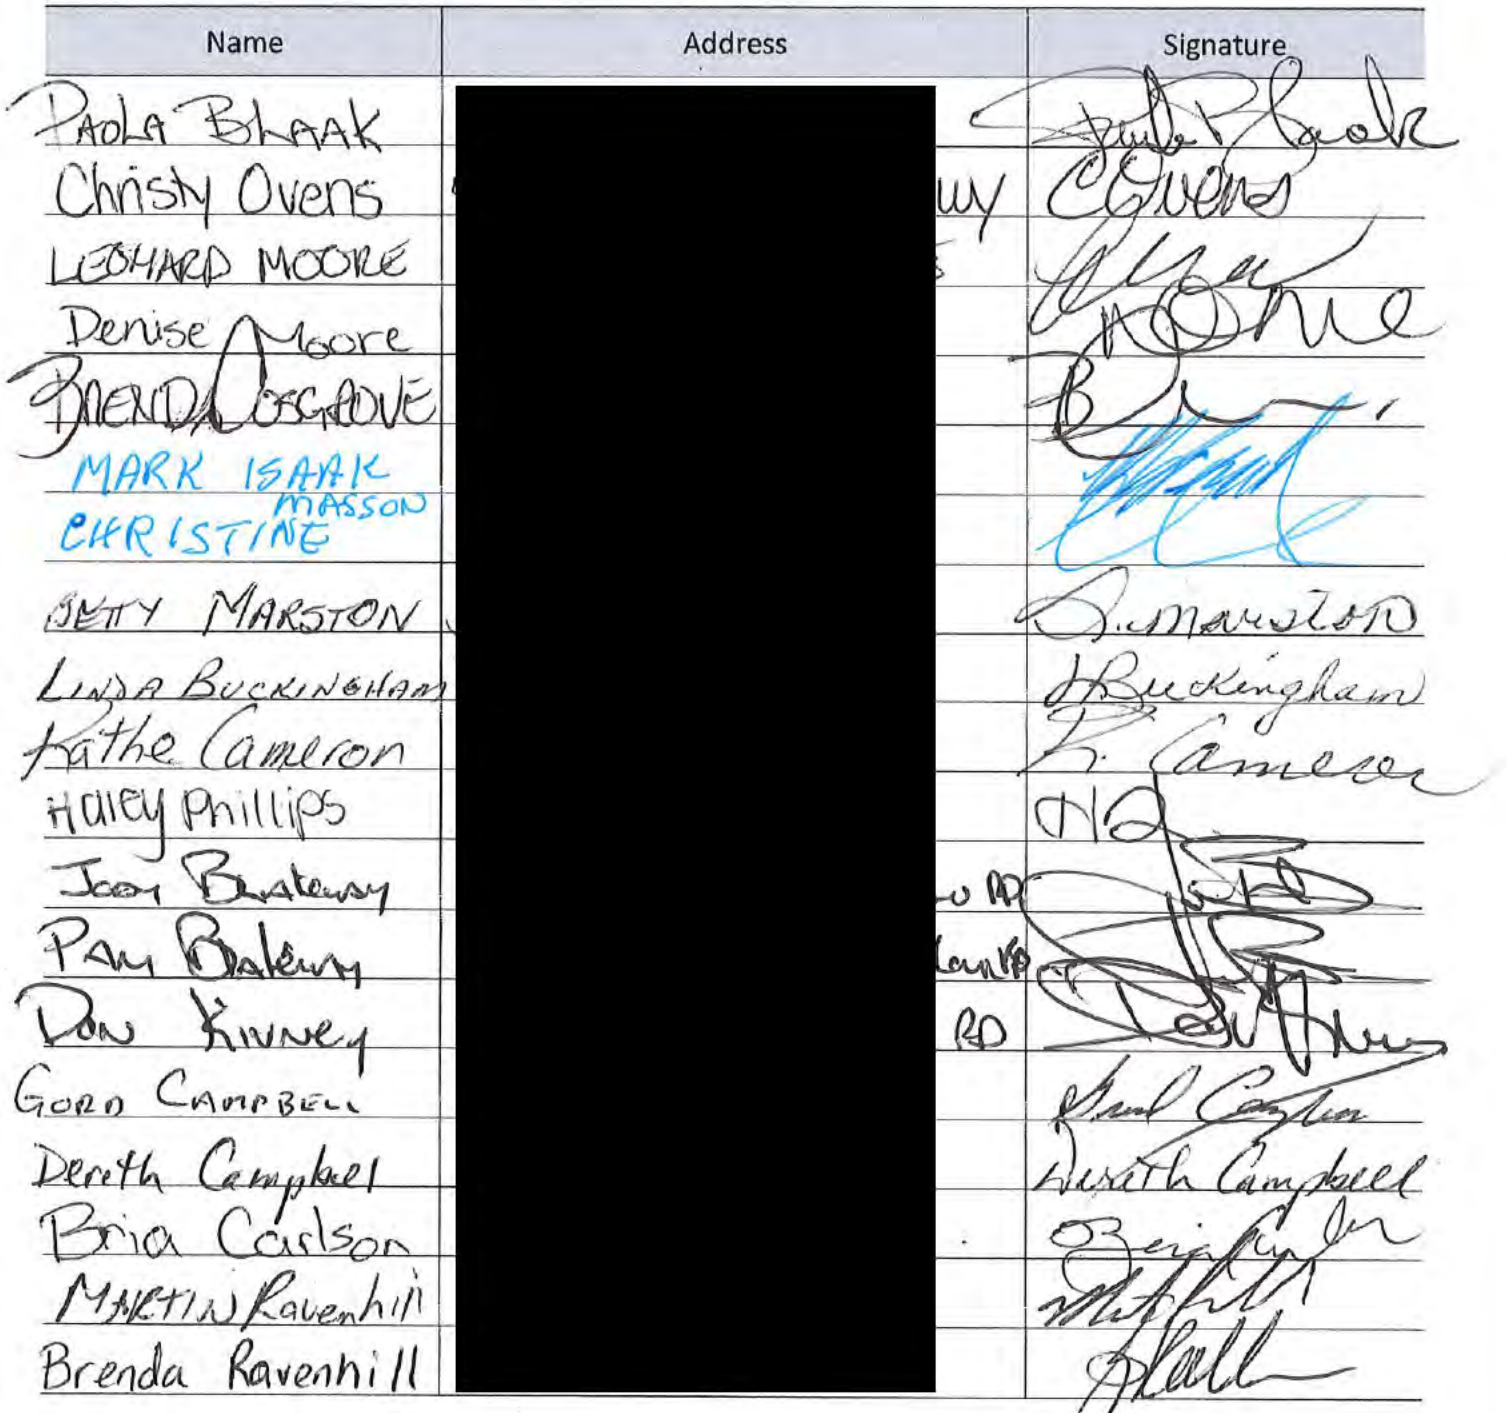 Name Address Signature
PAOLA BLAAK Blaak
Christy Ovens WY COvens
LEONARD MOORE
Denise Moore
BRENDA COSGROVE
MARK ISAAK
MASSON
CHRISTINE
BETTY MARSTON B. Marston
LINDA BUCKINGHAM LBuckingham
Kathe Cameron K. Cameron
Haley Phillips HP
Blakeway RD
PAM Blakeway RD
DON KINNEY RD Don
GORD CAMPBELL
Dereth Campbell Dereth Campbell
Bria Carlson Bria
MARTIN Ravenhill
Brenda Ravenhill